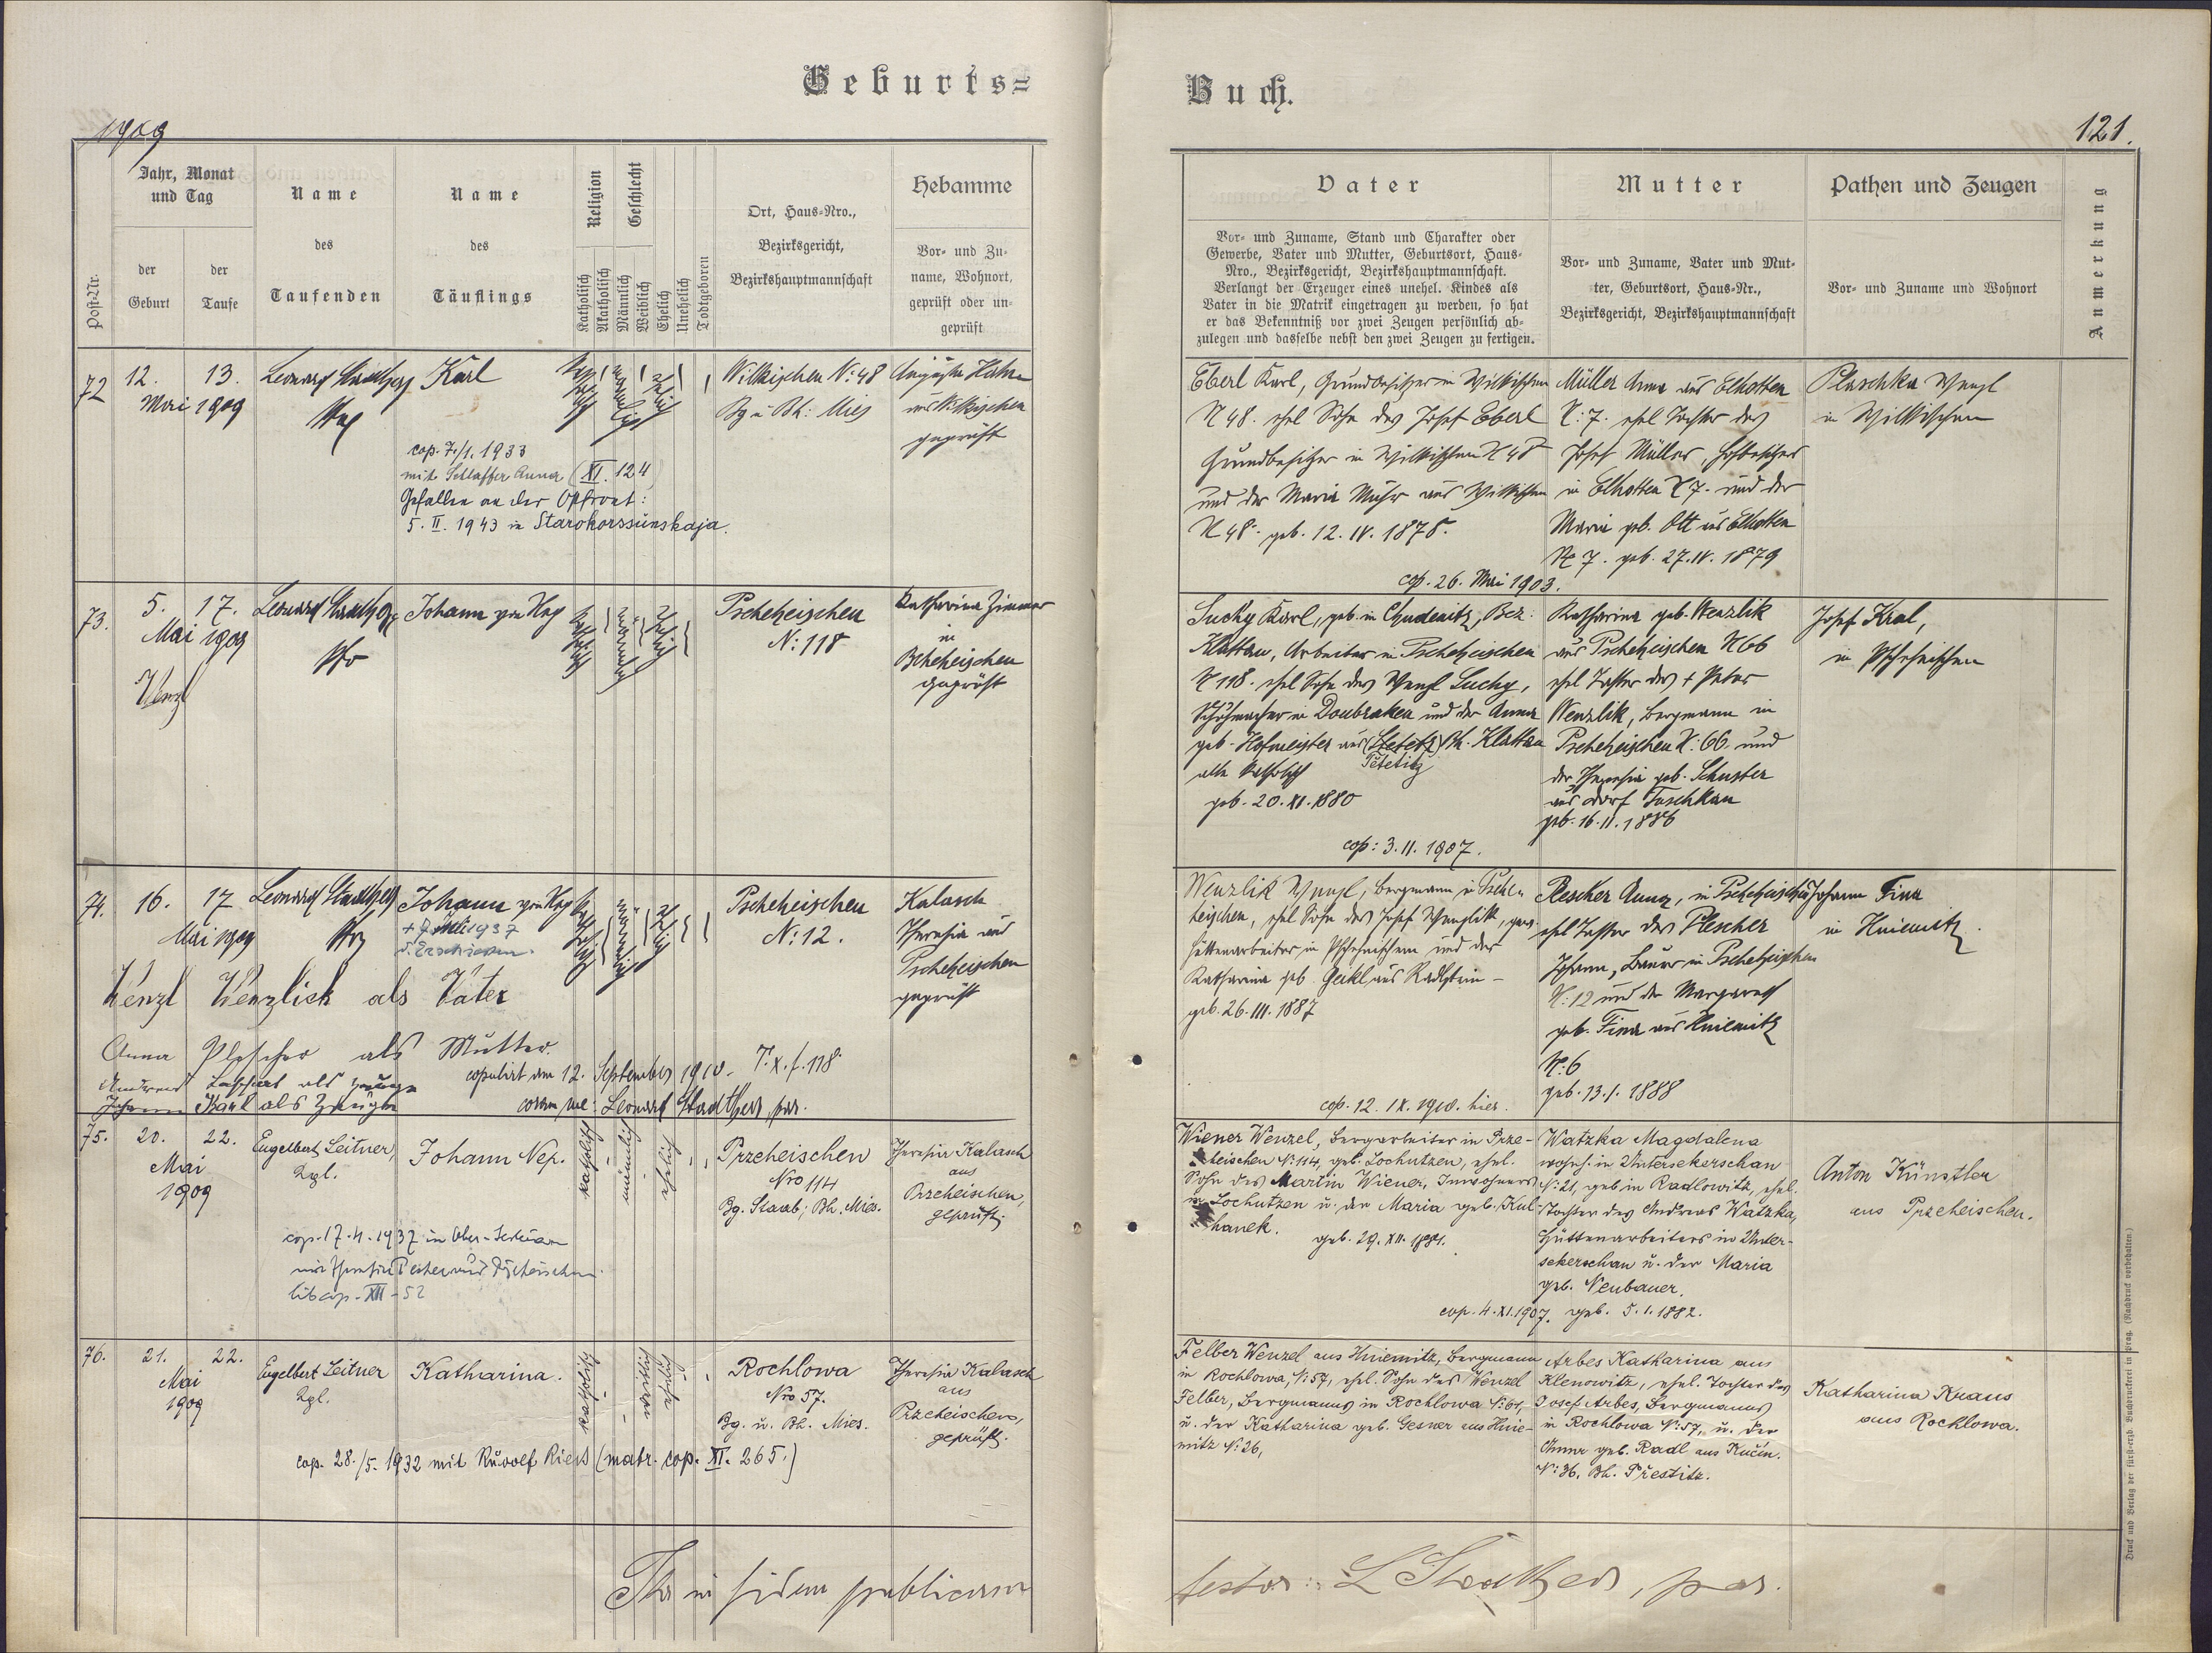 Geburts=
Buch.
1909
121.
Post-Nr.
Jahr, Monat
und Tag
der
Geburt
der
Taufe
Name
des
Taufenden
Name
des
Täuflings
Religion
Katholisch
Akatholisch
Geschlecht
Männlich
Weiblich
Ehelich
Unehelich
Todtgeboren
Ort, Haus=Nro.,
Bezirksgericht,
Bezirkshauptmannschaft
Hebamme
Vor= und Zu=
name, Wohnort,
geprüft oder un=
geprüft
Vater
Vor= und Zuname, Stand und Charakter oder
Gewerbe, Vater und Mutter, Geburtsort, Haus=
Nro., Bezirksgericht, Bezirkshauptmannschaft.
Verlangt der Erzeuger eines unehel. Kindes als
Vater in die Matrik eingetragen zu werden, so hat
er das Bekenntniß vor zwei Zeugen persönlich ab=
zulegen und dasselbe nebst den zwei Zeugen zu fertigen.
Mutter
Vor= und Zuname, Vater und Mut=
ter, Geburtsort, Haus=Nr.,
Bezirksgericht, Bezirkshauptmannschaft
Pathen und Zeugen
Vor= und Zuname und Wohnort
Anmerkung
72
12.
13.
Mai 1909
Leonard Stadtherr
Karl
cop. 7./1. 1933
mit Schlaffer Anna (XI. 124)
Gefallen an der Ostfront:
5. II. 1943 in Starokorssunskaja.
Wilkischen N: 48
Bg u Bh: Mies
Auguste Hahn
aus Wilkischen
geprüft
Eberl Karl, Grundbesitzer in Wilkischen
N 48. ehel Sohn des Josef Eberl
Grundbesitzer in Wilkischen N 48
und der Maria aus Wilkischen
N 48. geb. 12. IV. 1878.
Müller Anna aus Elhotten
N: 7. ehel Tochter des
Josef Müller, Hofbesitzer
in Elhotten N 7. und der
Maria geb. Ott aus Elhotten
N 7. geb. 27. IV. 1879
cop. 26. Mai 1903.
Plaschka Wenzl
in Wilkischen
73.
5.
17.
Mai 1909
Wenzl
Leonard Stadtherr
Johann von Nep
Pscheheischen
N: 118
Katharina Zimmer
in
Pscheheischen
geprüft
Suchy Karl, geb. in Chudenitz, Bez:
Klattau, Arbeiter in Pscheheischen
N 118. ehel Sohn des Wenzl Suchy,
Schuhmacher in Doubraken und der Anna
geb. Hofmeister aus (Stetetz) Bh. Klattau
Tetetitz
alle katholisch
geb. 20. XI. 1880
cop: 3. II. 1907.
Katharina geb. Wenzlik
aus Pscheheischen N 66
ehel Tochter des + Peter
Wenzlik, Bergmann in
Pscheheischen N: 66. und
der Theresia geb. Schuster
aus Dorf Tuschkau
geb. 16. II. 1886
Josef Kral,
in Pscheheischen
74.
16.
17
Mai 1909
Leonard Stadtherr
Johann von Nep
1937
Pscheheischen
N: 12.
Kalasch
Theresia aus
Pscheheischen
geprüft
Wenzl Wenzlick als Vater
Anna Plescher als Mutter.
als Zeuge
Johann Karl als Zeuge
copulirt am 12. September 1910. T. X. f. 118
coram me: Leonard Stadtherr, par.
Wenzlik Wenzl, Bergmann in Psche
heischen, ehel Sohn des Josef Wenzlik,
Hüttenarbeiter in Pscheheischen und der
Katharina geb Geikl aus Radlstein
geb. 26. III. 1887
cop. 12. IX. 1910. hier.
Plescher Anna, in Pscheheischen
ehel Tochter des Plescher
Johann, Bauer in Pscheheischen
N: 12 und der Margareth
geb. Fina aus Hniemitz
N: 6
geb. 13. 1. 1888
Johann Fina
in Hniemitz.
75.
20.
22.
Mai
1909
Engelbert Leitner,
Kpl.
Johann Nep.
katholisch
männlich
ehelich
cop. 17. 4. 1937 in Ober-Sekerschan
mit Theresia
lib cop. XII - 52
Przeheischen
Nro 114
Bg. Staab; Bh. Mies.
Theresia Kalasch
aus
Przeheischen,
geprüft.
Wiener Wenzel, Bergarbeiter in Prze-
heischen N: 114, geb. Lochutzen, ehel.
Sohn des Martin Wiener, Inwohners
in Lochutzen u. der Maria geb. Kul-
hanek.
geb. 29. XII. 1881.
Watzka Magdalena
wohnh. in Untersekerschan
N: 21, geb in Radlowitz, ehel.
Tochter des Andreas Watzka,
Hüttenarbeiters in Unter-
sekerschan u. der Maria
geb. Neubauer.
cop. 4. XI. 1907. geb. 5. 1. 1882.
Anton Künstler
aus Przeheischen.
76.
21.
22.
Mai
1909
Engelbert Leitner
Kpl.
Katharina.
katholisch
weiblich
ehelich
cop. 28./5. 1932 mit Rudolf Riedl (matr. cop. XI. 265.)
Rochlowa
Nro 57.
Bg. u. Bh. Mies.
Theresia Kalasch
aus
Przeheischen,
geprüft.
Felber Wenzel aus Hniemitz, Bergmann
in Rochlowa, N: 57, ehel. Sohn des Wenzel
Felber, Bergmanns in Rochlowa N: 61,
u. der Katharina geb. Gesner aus Hnie-
mitz N: 26,
Arbes Katharina aus
Klenowitz, ehel. Tochter des
Josef Arbes, Bergmanns
in Rochlowa N: 57, u. der
Anna geb. Radl aus Kučín.
N: 36. Bh. Přestitz.
Katharina Kraus
aus Rochlowa.
in fidem publicam
testor: L Stadtherr, par.
Druck und Verlag der fürst=erzb. Buchdruckerei in Prag. (Nachdruck vorbehalten.)